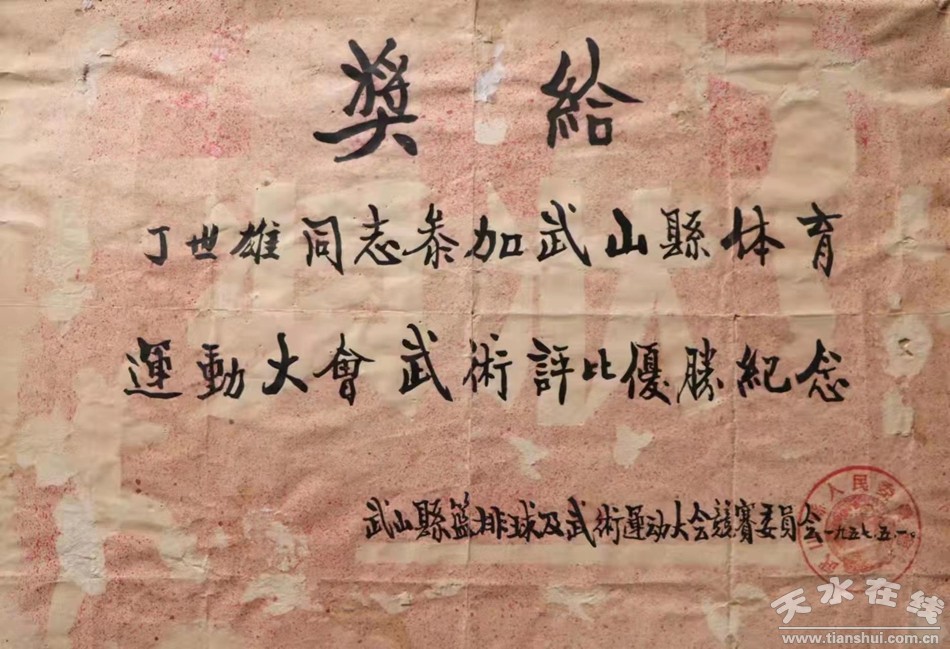 獎給
丁世雄同志参加武山縣体育
運動大會武術評比優勝紀念
武山縣籃排球及武術運动大会競賽委員会一九五七.五.一.
人民委
天水在线
www.tianshui.com.cn